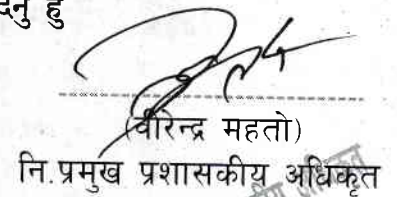 हु
(वीरेन्द्र महतो)
नि.प्रमुख प्रशासकीय अधिकृत